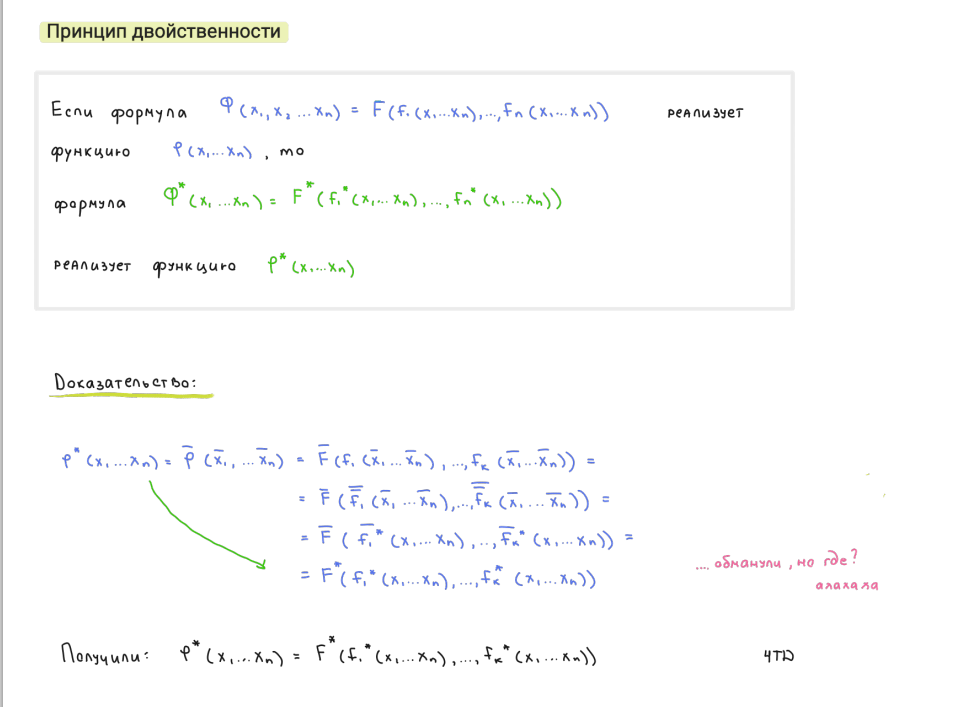 Принцип двойственности
Если формула Φ(x₁, x₂ ... xₙ) = F(f₁(x₁...xₙ),...,fₙ(x₁...xₙ)) реализует
функцию φ(x₁...xₙ), то
формула Φ*(x₁ ...xₙ) = F*(f₁*(x₁...xₙ),...,fₙ*(x₁ ...xₙ))
реализует функцию φ*(x₁...xₙ)
Доказательство:
φ*(x₁...xₙ) = φ̅(x̅₁, ...x̅ₙ) = F̅(f₁(x̅₁...x̅ₙ),...,fₖ(x̅₁...x̅ₙ)) =
= F̅(f̿₁(x̅₁ ...x̅ₙ),...,f̿ₖ(x̅₁...x̅ₙ)) =
= F̅(f̅₁*(x₁...xₙ),..,f̅ₖ*(x₁...xₙ)) =
= F*(f₁*(x₁...xₙ),...,fₖ*(x₁...xₙ))
.... обманули, но где?
алахала
Получили: φ*(x₁...xₙ) = F*(f₁*(x₁...xₙ),...,fₖ*(x₁...xₙ)) ЧТД